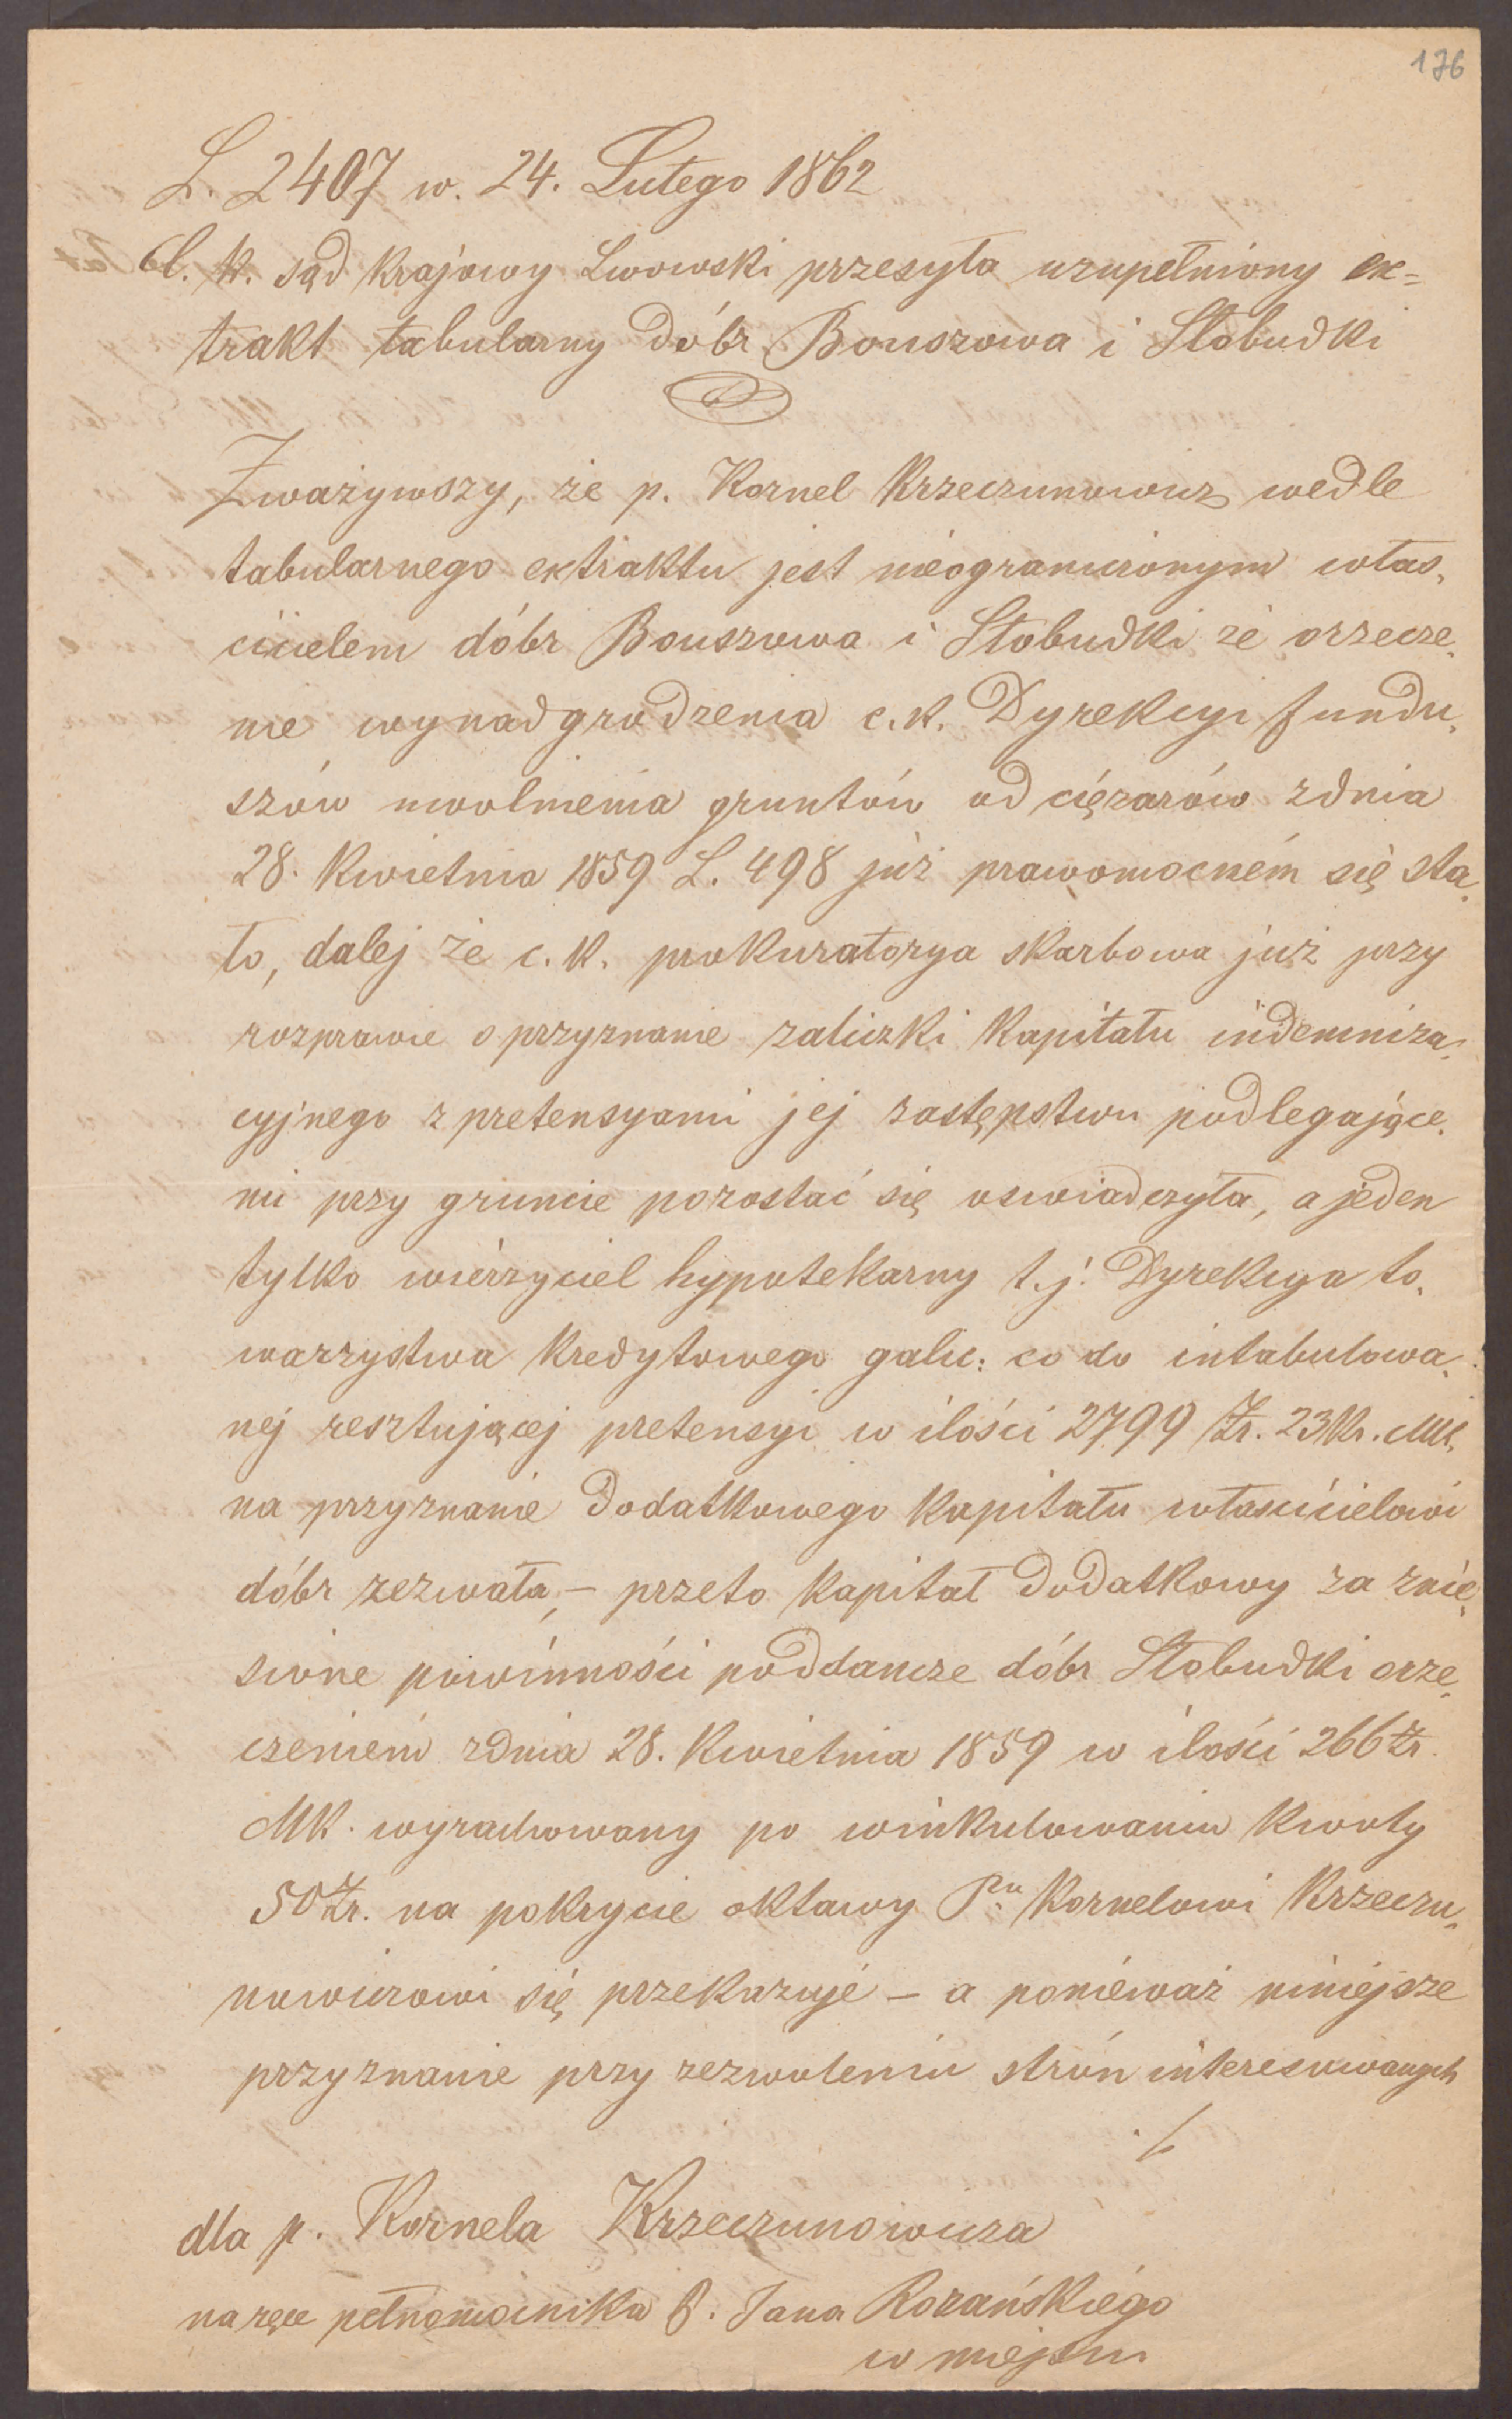 176
L. 2407 w. 24. Lutego 1862
C. k. sąd krajowy Lwowski przesyła uzupełniony ex=
trakt tabularny dóbr Bouszowa i Słobudki
Zważywszy, że p. Kornel Krzeczunowicz wedle
tabularnego extraktu jest nieograniczonym włas„
cicielem dóbr Bouszowa i Słobudki że orzecze„
nie wynadgrodzenia c. k. Dyrekcyi fundu„
szów uwolnienia gruntów od ciężarów z dnia
28. Kwietnia 1859 L. 498 już prawomocném się sta„
ło, dalej że c. k. prokuratorya skarbowa już przy
rozprawie o przyznanie zaliczki kapitału indemniza„
cyjnego z pretensyami jej zastępstwu podlegające„
mi przy gruncie pozostać się oswiadczyła, a jeden
tylko wierzyciel hypotekarny t. j. Dyrekcya to„
warzystwa kredytowego galic: co do intabulowa„
nej resztującej pretensyi w ilości 2799 Zr. 23 Kr. MK.
na przyznanie dodatkowego kapitału właścicielowi
dóbr zezwała, – przeto kapitał dodatkowy za znie„
sione powinności poddancze dóbr Słobudki orze„
czeniem z dnia 28. Kwietnia 1859 w ilości 266 Zr.
MK. wyrachowany po winkulowaniu kwoty
50 Zr. na pokrycie oktawy Pnu Kornelowi Krzeczu„
nowiczowi się przekazuje – a ponieważ niniejsze
przyznanie przy zezwoleniu strón interesowanych
./.
dla p. Kornela Krzeczunowicza
na ręce pełnomocnika P. Jana Rozańskiego
w miejscu